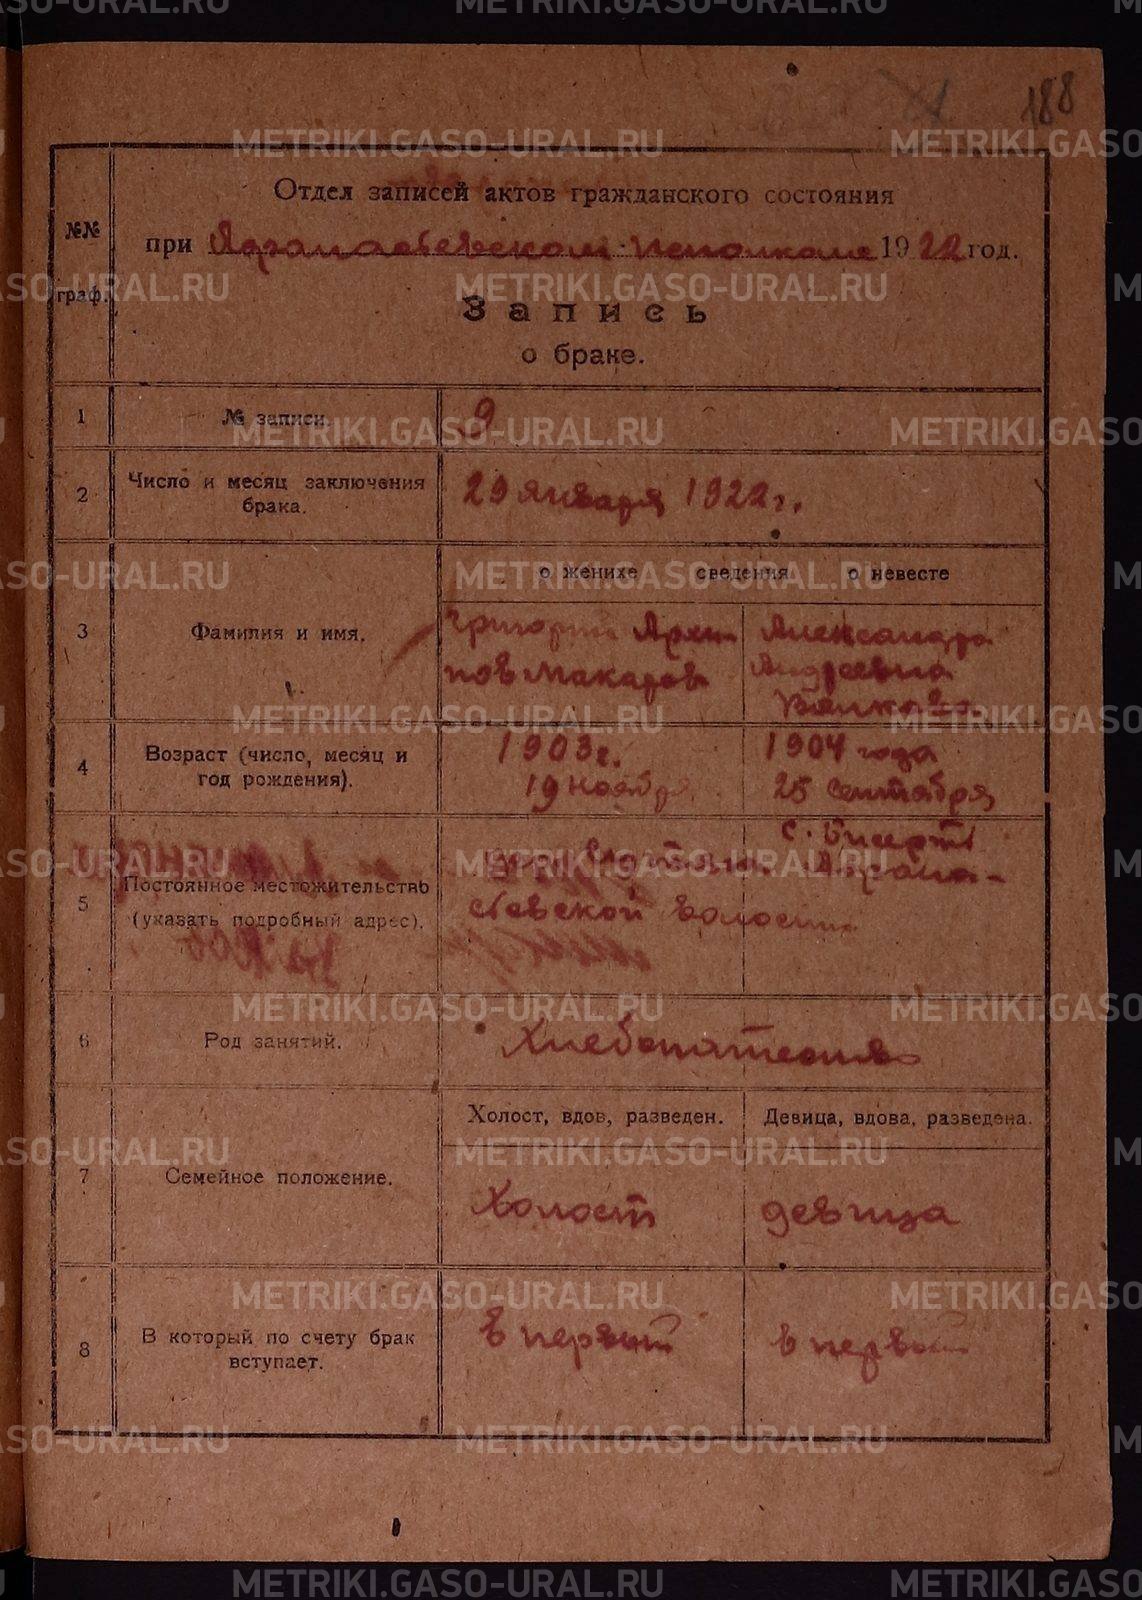 188
Отдел записей актов гражданского состояния
№№ граф.
при исполкоме 1922 год.
Запись
о браке.
1 № записи. 9
2 Число и месяц заключения брака. 29 января 1922 г.
о женихе сведения о невесте
3 Фамилия и имя.
Григорий Архи Александра
пов Макаров Андреевна
4 Возраст (число, месяц и год рождения).
1903 г. 1904 года
19 ноября 25 сентября
5 Постоянное местожительство (указать подробный адрес).
с. Бисерть
волости
6 Род занятий. Хлебопашество
Холост, вдов, разведен. Девица, вдова, разведена.
7 Семейное положение.
Холост девица
8 В который по счету брак вступает.
в первый в первый
METRIKI.GASO-URAL.RU